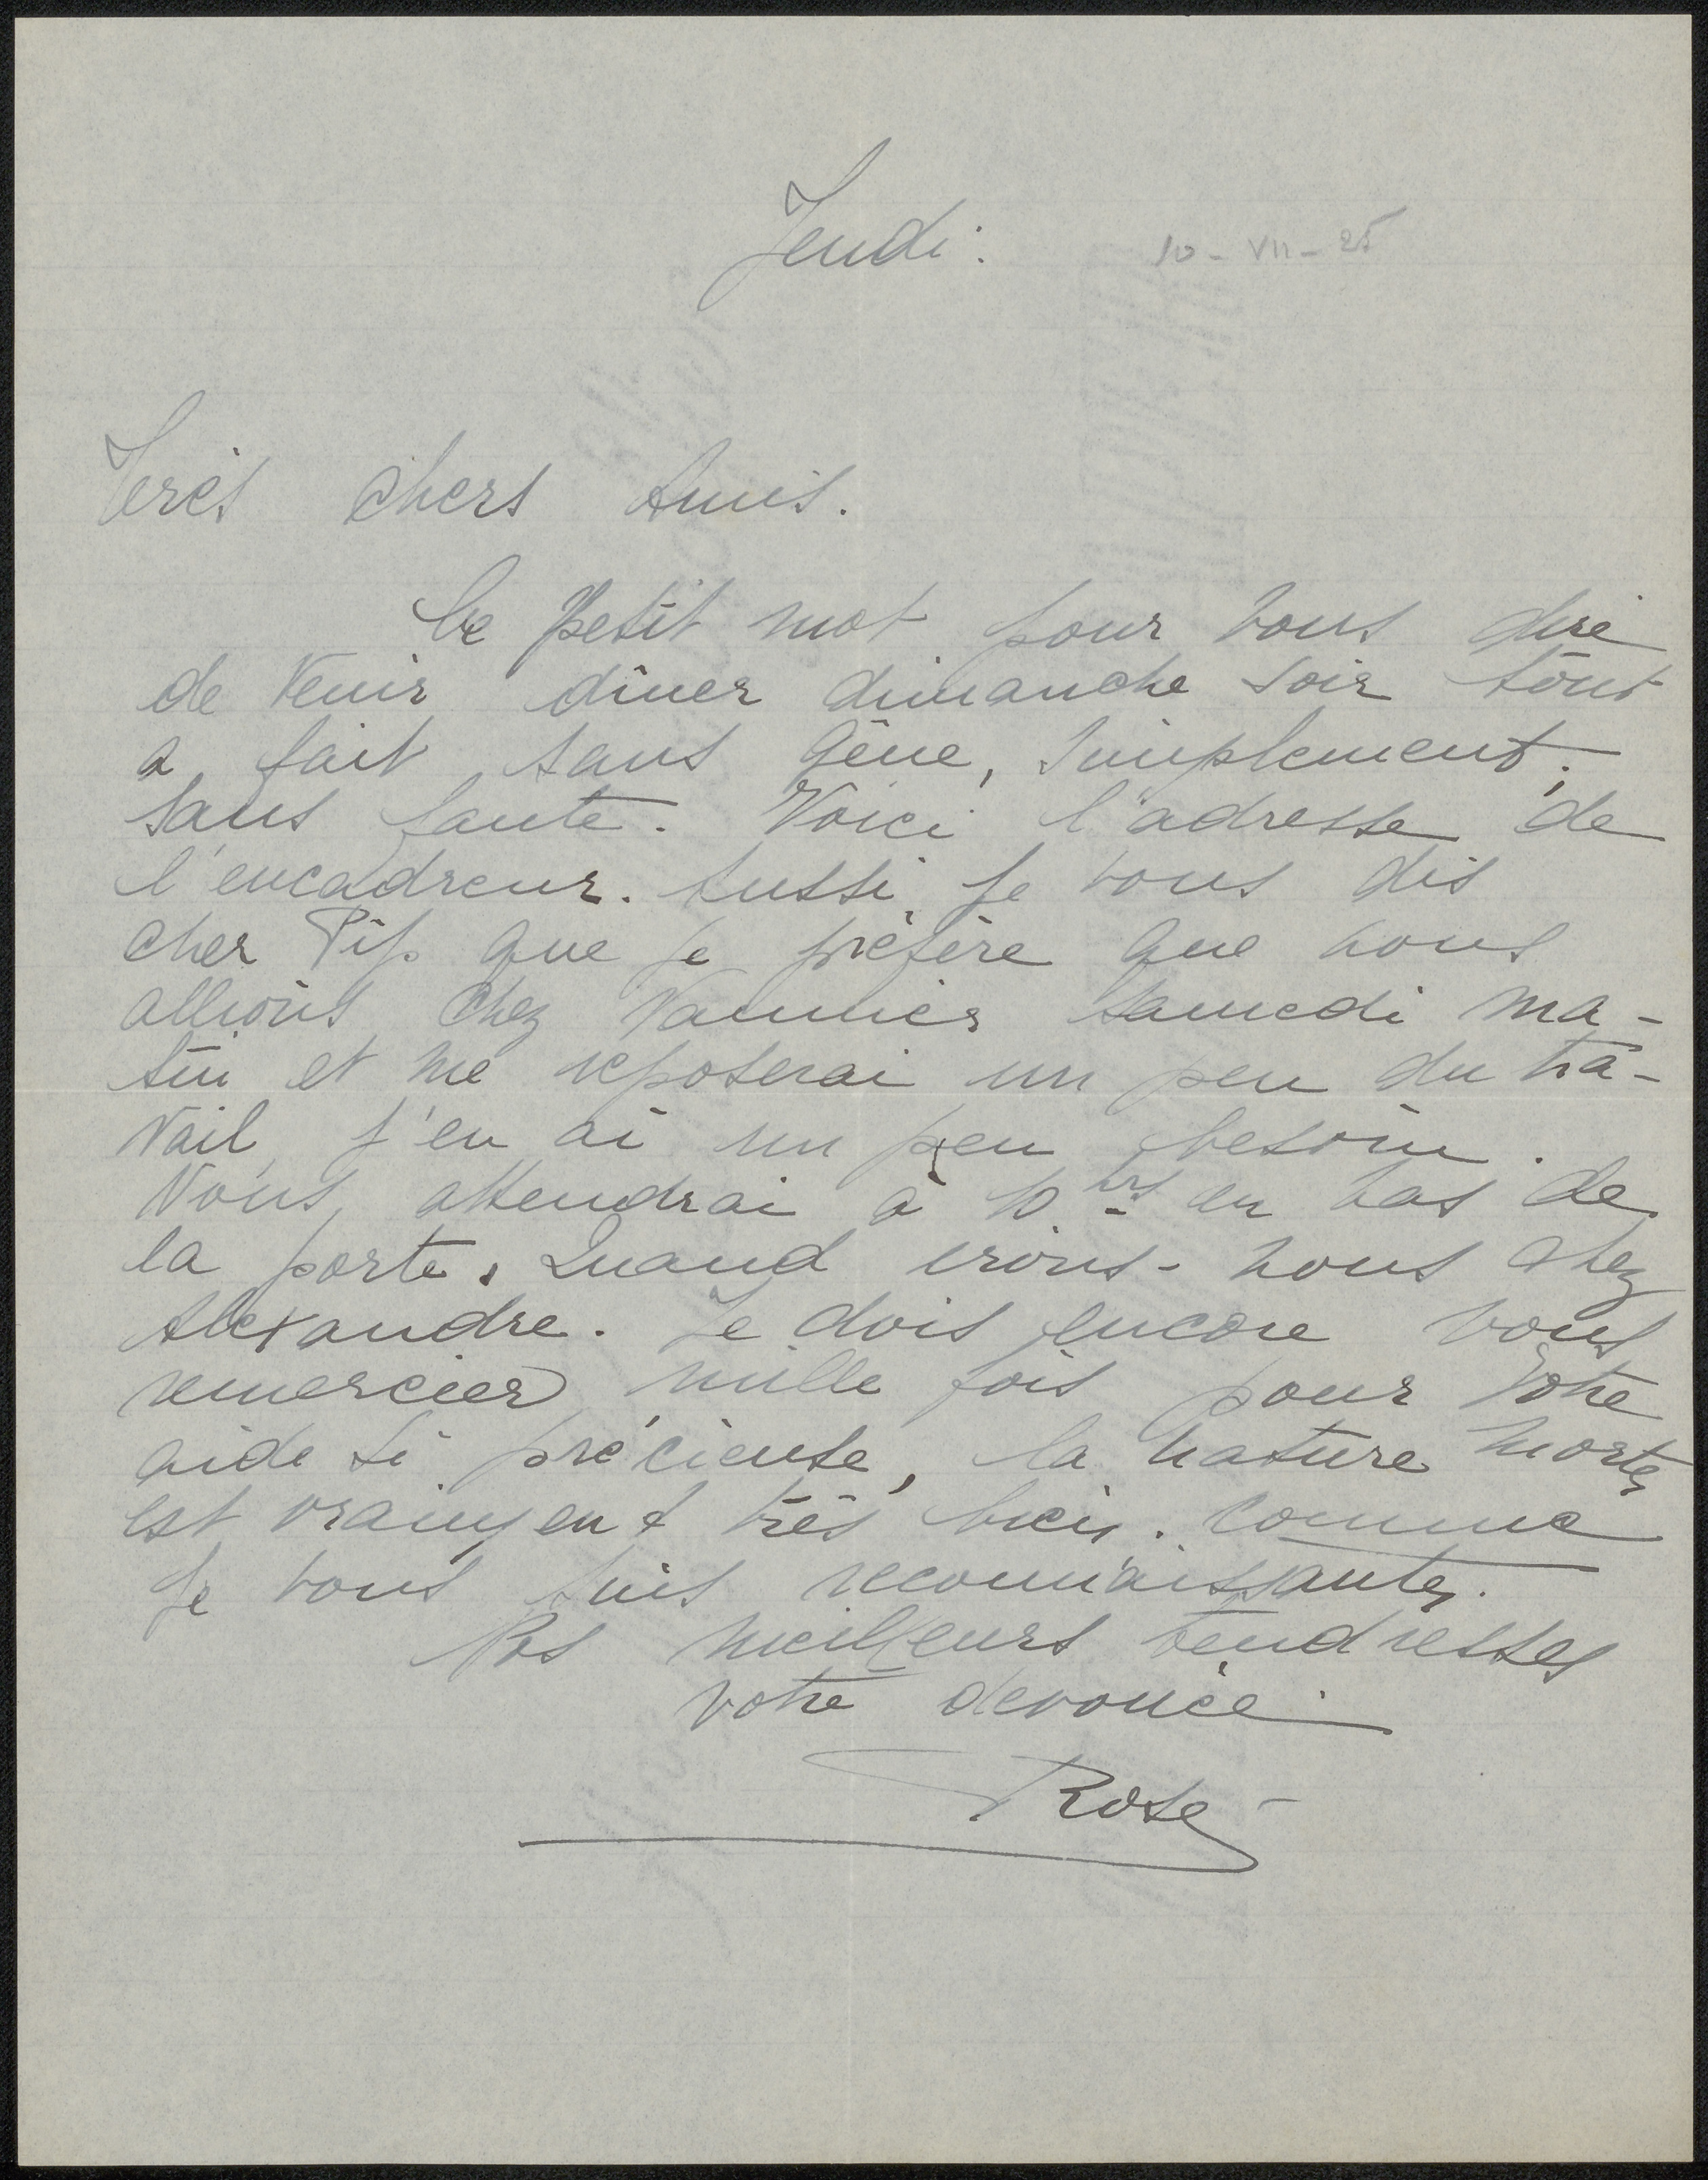 Jeudi:
10-VII-25
Très chers Amis.
Ce petit mot pour vous dire
de venir dîner dimanche soir tout
a fait sans gêne, simplement.
sans faute. Voici l'adresse de
l'encadreur. Aussi je vous dis
cher Pip que je préfère que nous
allions chez Vannier samedi ma-
tin et me reposerai un peu du tra-
vail, j'en ai un peu besoin.
Vous attendrai à 10 hrs en bas de
la porte. Quand irons-nous chez
Alexandre. Je dois encore vous
remercier mille fois pour votre
aide si précieuse, la nature morte
est vraiment très bien. Comme
je vous suis reconnaissante.
Nos meilleurs tendresses
votre devouée
Rose